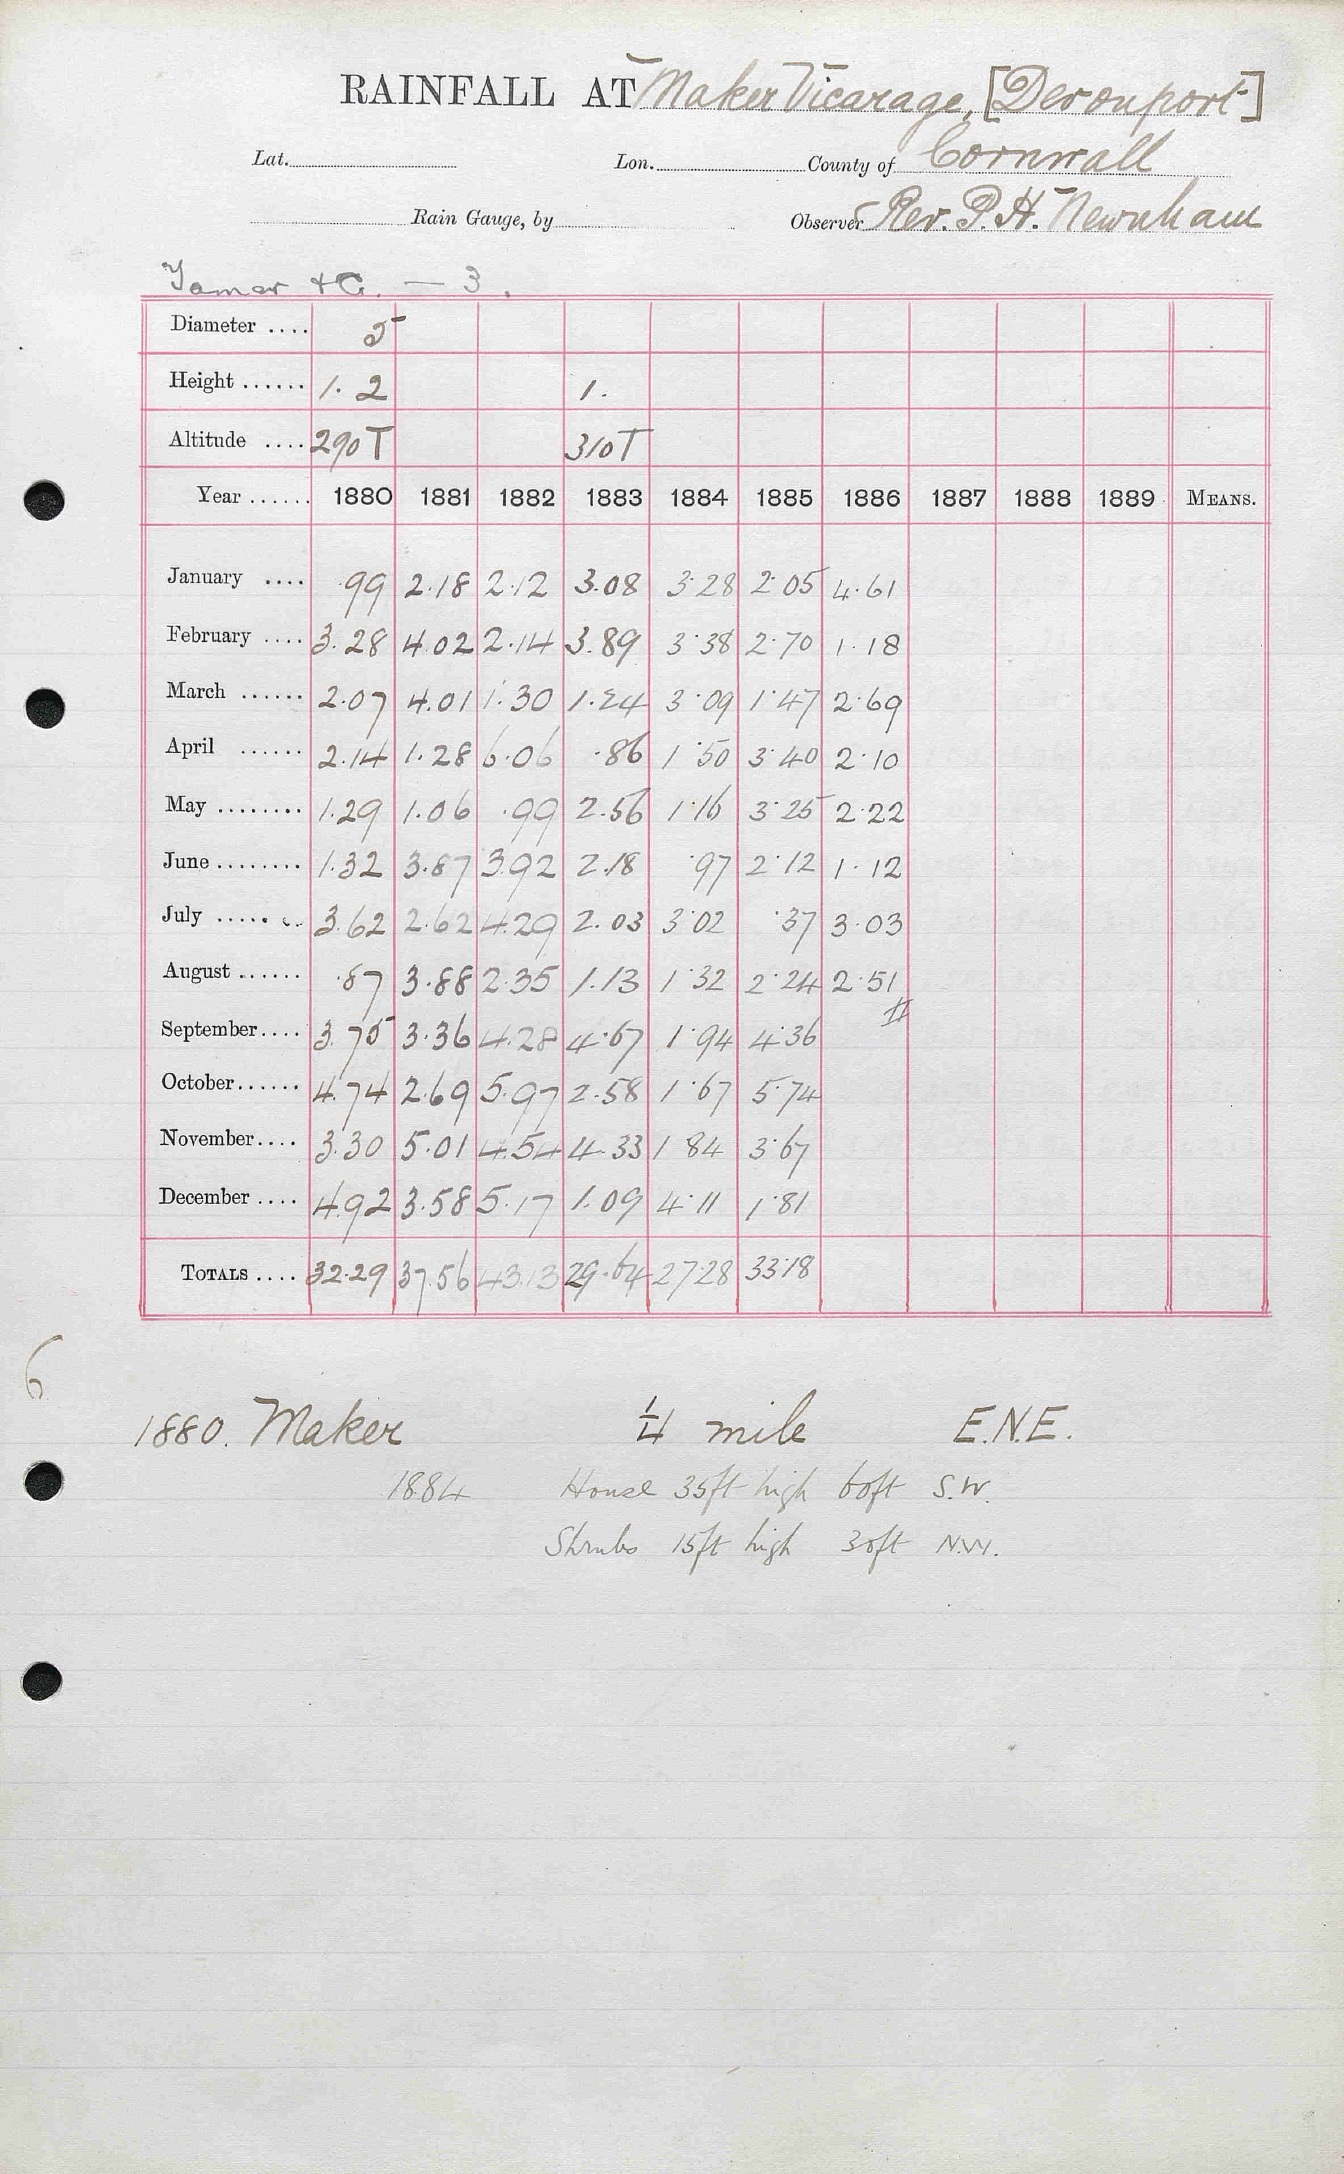 RAINFALL AT Maker Vicarage, [Devonport]
Lat. Lon. County of Cornwall
Rain Gauge, by Observer Rev. P. H. Newnham
Tamar &c. — 3.
Diameter .... 5
Height ...... 1. 2 1.
Altitude .... 290 T 310 T
Year ...... 1880 1881 1882 1883 1884 1885 1886 1887 1888 1889 MEANS.
January .... .99 2.18 2.12 3.08 3.28 2.05 4.61
February .... 3.28 4.02 2.14 3.89 3.38 2.70 1.18
March ...... 2.07 4.01 1.30 1.24 3.09 1.47 2.69
April ...... 2.14 1.28 6.06 .86 1.50 3.40 2.10
May ........ 1.29 1.06 .99 2.56 1.16 3.25 2.22
June ........ 1.32 3.87 3.92 2.18 .97 2.12 1.12
July ........ 3.62 2.62 4.29 2.03 3.02 .37 3.03
August ...... .87 3.88 2.35 1.13 1.32 2.24 2.51
September.... 3.75 3.36 4.28 4.67 1.94 4.36
October...... 4.74 2.69 5.97 2.58 1.67 5.74
November.... 3.30 5.01 4.54 4.33 1 84 3.67
December .... 4.92 3.58 5.17 1.09 4.11 1.81
TOTALS .... 32.29 37.56 43.13 29.64 27.28 33.18
6
1880. Maker 1/4 mile E.N.E.
1884 House 35ft high 60ft S.W.
Shrubs 15ft high 30ft N.W.